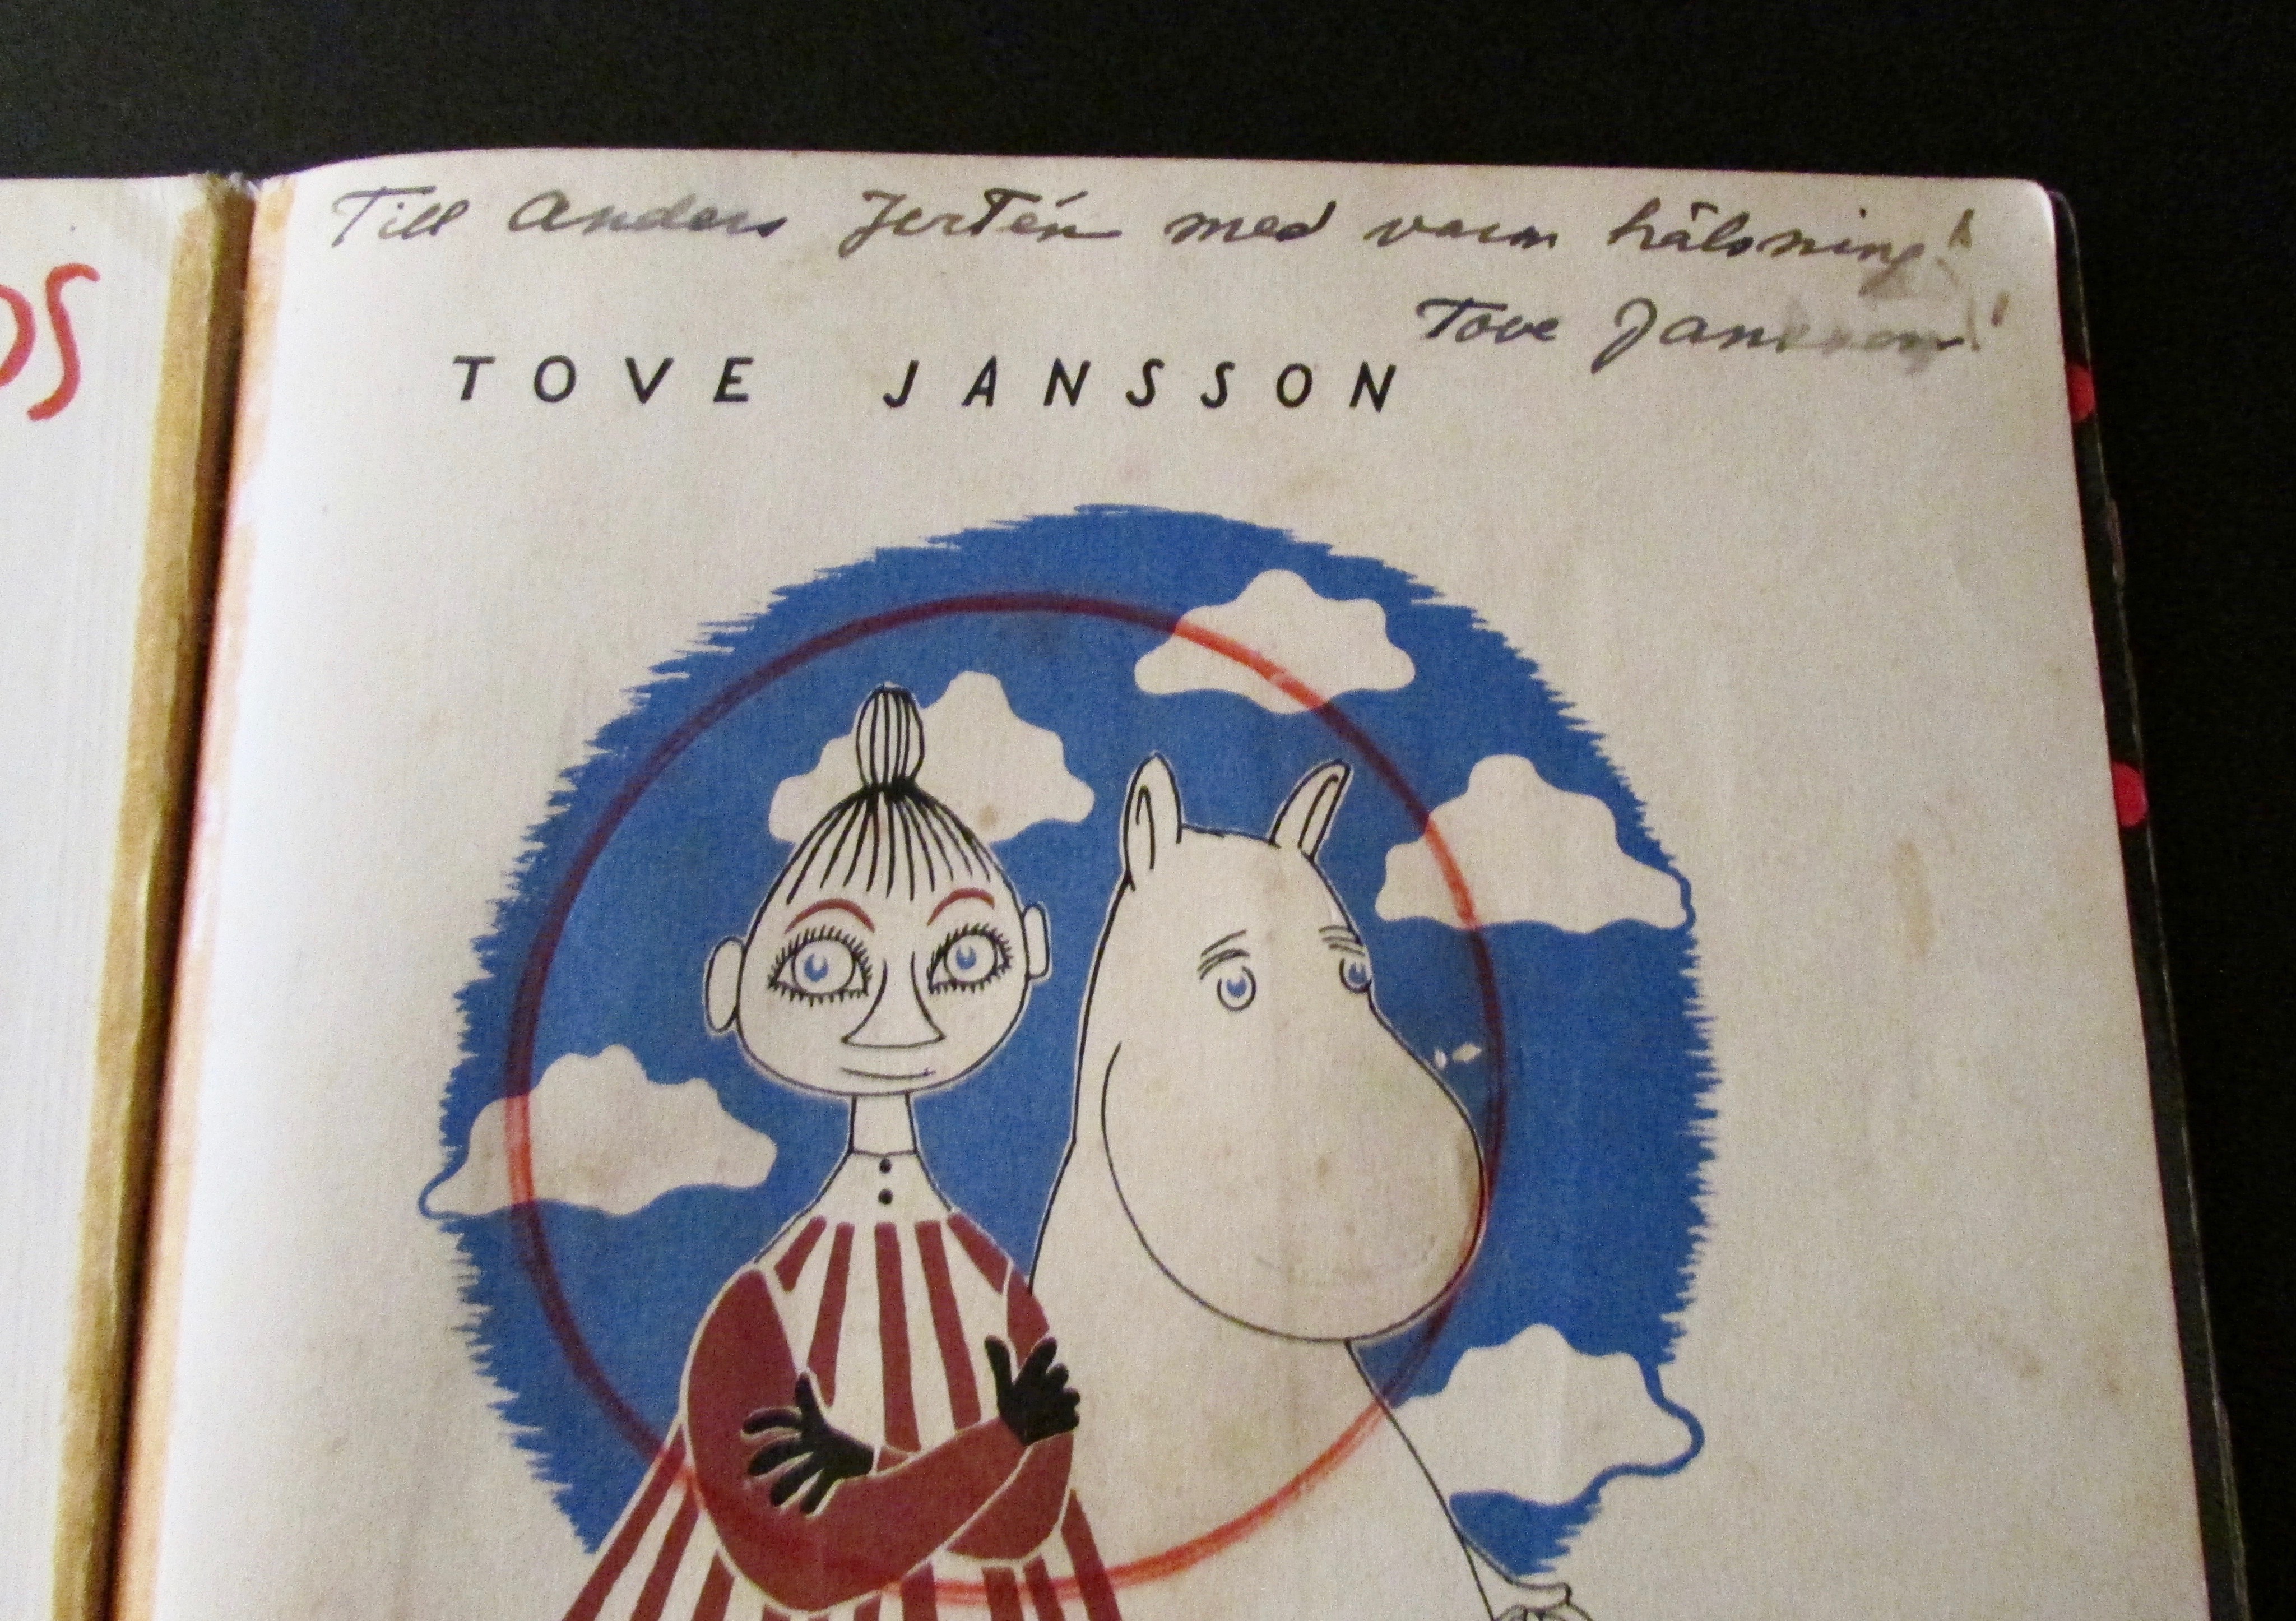 Till Anders Jertén med varm hälsning!
Tove Jansson!
TOVE JANSSON
OS